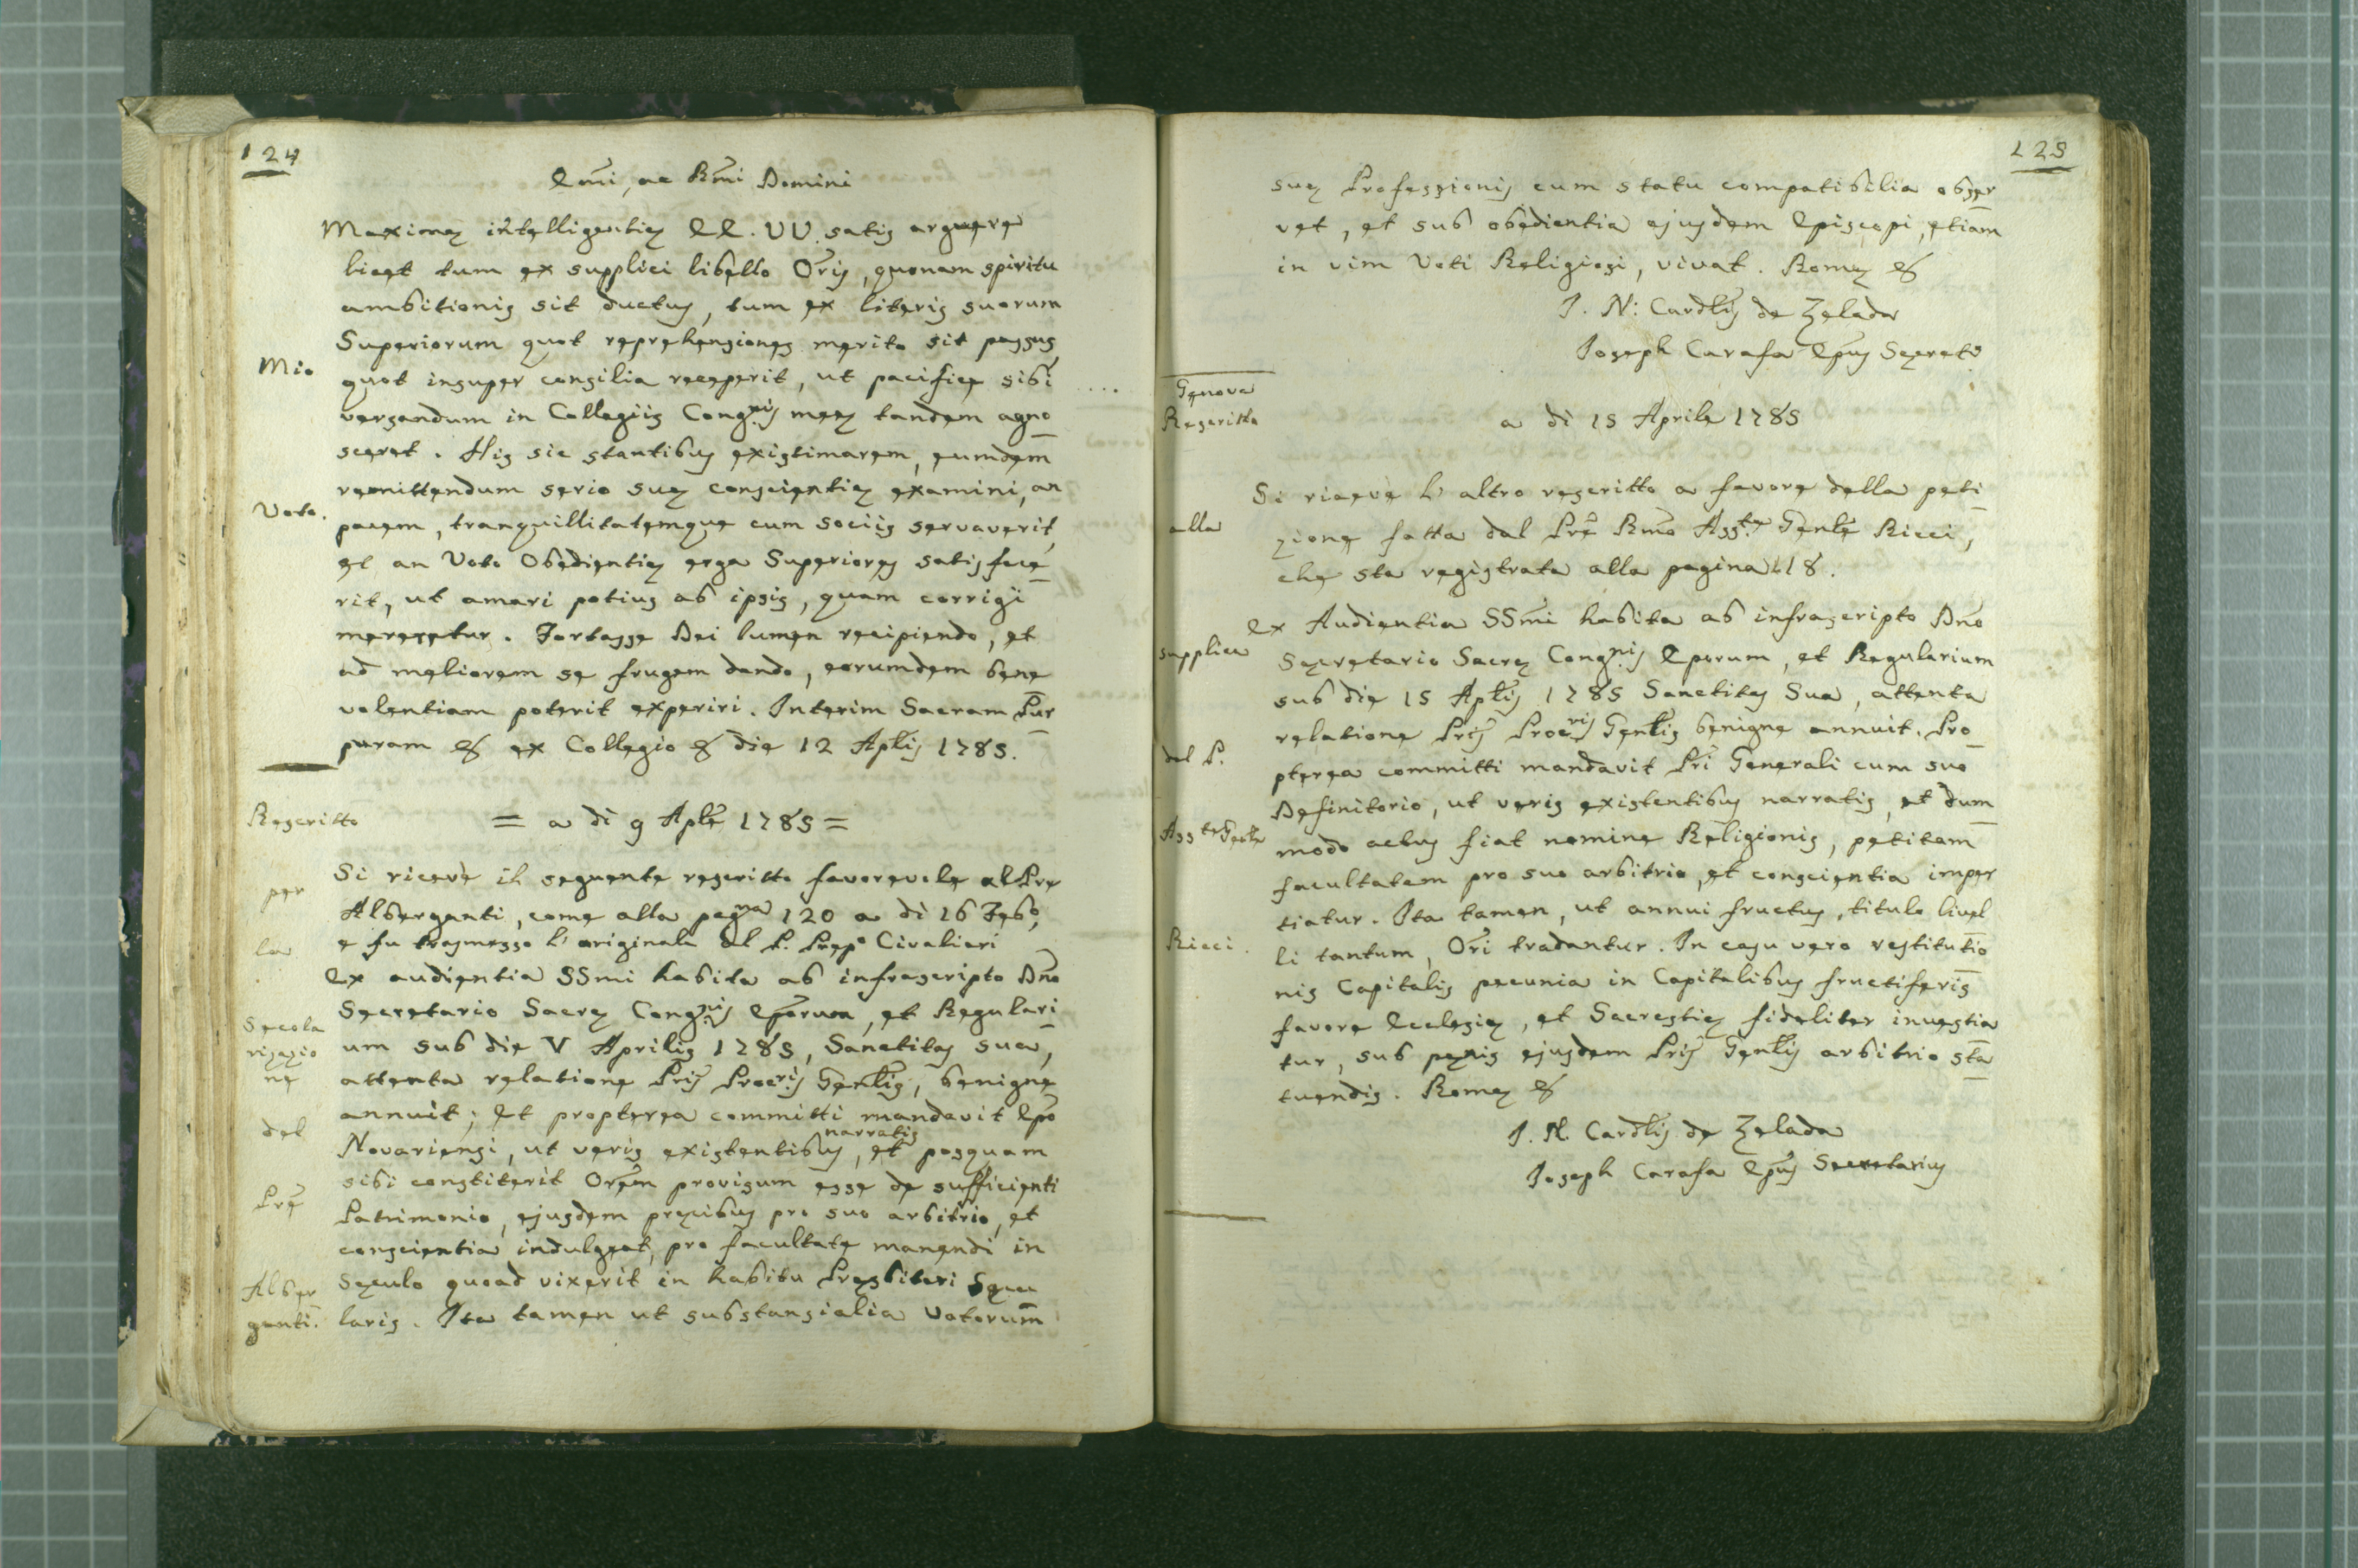 124
Emĩ, ac Rmĩ Domini
Maximæ intelligentiæ EE. VV. satis arguere
licet tum ex supplici libello Orĩs, quonam spiritu
ambitionis sit ductus, tum ex literis suorum
Superiorum quot reprehensiones merito sit passus,
Mio
quot insuper consilia receperit, ut pacifice sibi
versandum in Collegiis Congnis meæ tandem agno
sceret. His sic stantibus existimarem, eumdem
remittendum serio suæ conscientiæ examini, an
Voto.
pacem, tranquillitatemque cum sociis servaverit,
et an Voto Obedientiæ erga Superiores satisfece
rit, ut amari potius ab ipsis, quam corrigi
mereretur. Fortasse Dei lumen recipiendo, et
ad meliorem se frugem dando, eorumdem bene
volentiam poterit experiri. Interim Sacram Pur
puram & ex Collegio & die 12 Aplis 1785.
Rescritto
= a dì 9 Aple 1785 =
Si ricevè il seguente rescritto favorevole al Pre
per
Alberganti, come alla pagna 120 a dì 16 Febo,
e fu trasmesso l'originale al P. Prepo Civalieri
la
Ex audientia SSmi habita ab infrascripto Dno
Secretario Sacræ Congnis Eporum, et Regulari
Secola
um sub die V Aprilis 1785, Sanctitas sua,
rizazio
ne
attenta relatione Pris Procris Genlis, benigne
annuit; Et propterea committi mandavit Epo
del
narratis
Novariensi, ut veris existentibus, et posquam
sibi constiterit Orem provisum esse de sufficienti
Pre
Patrimonio, ejusdem precibus pro suo arbitrio, et
conscientia indulgeat, pro facultate manendi in
Sæculo quoad vixerit in habitu Presbiteri Sæcu
Alber
ganti.
laris. Ita tamen ut substansialia Votorum
125
suæ Professionis cum statu compatibilia obser
vet, et sub obedientia ejusdem Episcopi, etiam
in vim Voti Religiosi, vivat. Romæ &
J. N: Cardlis de Zelada
Joseph Carafa Epus Secrets
Genova
Rescritto
a dì 15 Aprile 1785
Si ricevè l'altro rescritto a favore della peti
alla
zione fatta dal Pre Rmo Asste Genle Ricci,
che sta registrata alla pagina 118.
Ex Audientia SSmi habita ab infrascripto Dno
supplica
Secretario Sacræ Congnis Eporum, et Regularium
sub die 15 Aplis 1785 Sanctitas Sua, attenta
relatione Pris Procris Genlis benigne annuit. Pro
del P.
pterea committi mandavit Pri Generali cum suo
Definitorio, ut veris existentibus narratis, et dum
Asste Genle
modo actus fiat nomine Religionis, petitam
facultatem pro suo arbitrio, et conscientia imper
tiatur. Ita tamen, ut annui fructus, titulo livel
Ricci.
li tantum, Ori tradantur. In casu vero restitutio
nis Capitalis pecunia in Capitalibus fructiferis
favore Ecclesiæ, et Sacrestiæ fideliter investia
tur, sub pœnis ejusdem Pris Genlis arbitrio sta
tuendis. Romæ &
J. N. Cardlis de Zelada
Joseph Carafa Epus Secretarius